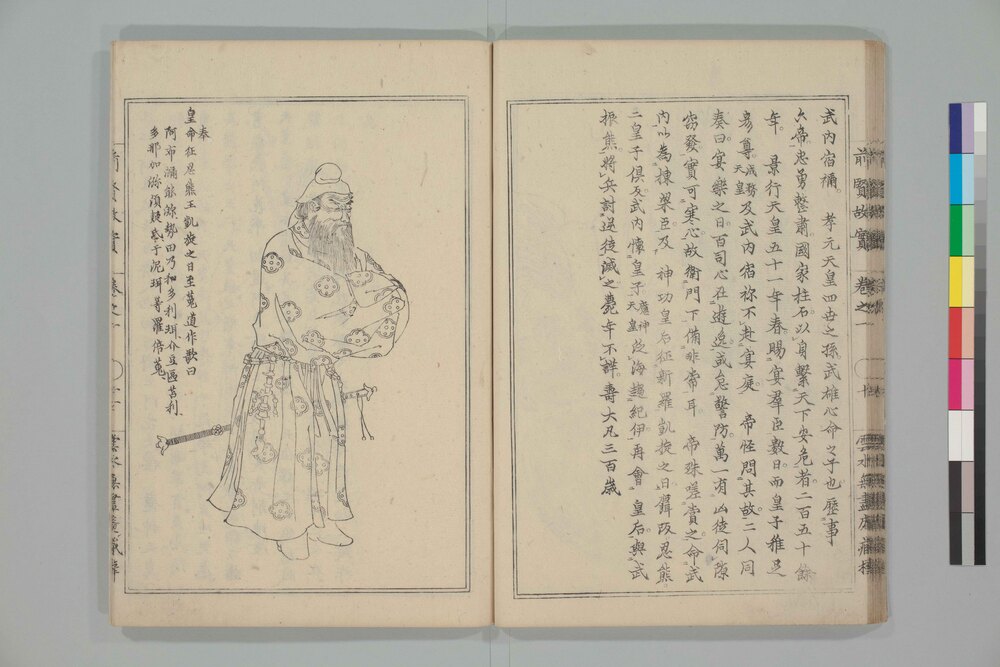 武内宿禰　孝元天皇四世之孫武雄心命之子也歷事
六帝忠勇整肅國家柱石以身繫天下安危者二百五十餘
年　景行天皇五十一年春賜宴羣臣數日而皇子稚足
彦尊成務天皇及武内宿祢不赴宴庭　帝怪問其故二人同
奏曰宴樂之日百司心在遊逸或怠警防萬一有凶徒伺隙
窃發實可寒心故衛門下備非常耳　帝殊嗟賞之命武
内以為棟梁臣及　神功皇后征新羅凱旋之日麛坂忍熊
二皇子俱反武内懐皇子應神天皇泛海趨紀伊再會　皇后與武
振熊將兵討逆後滅之薨年不詳壽大凡三百歳
前賢故實　卷之一
奉
皇命征忍熊王凱旋之日至菟道作歌曰
阿布瀰能瀰勢田乃和多利珥介豆區苫利
多那加瀰須疑氐于泥珥等羅倍菟
前賢故實　卷之一